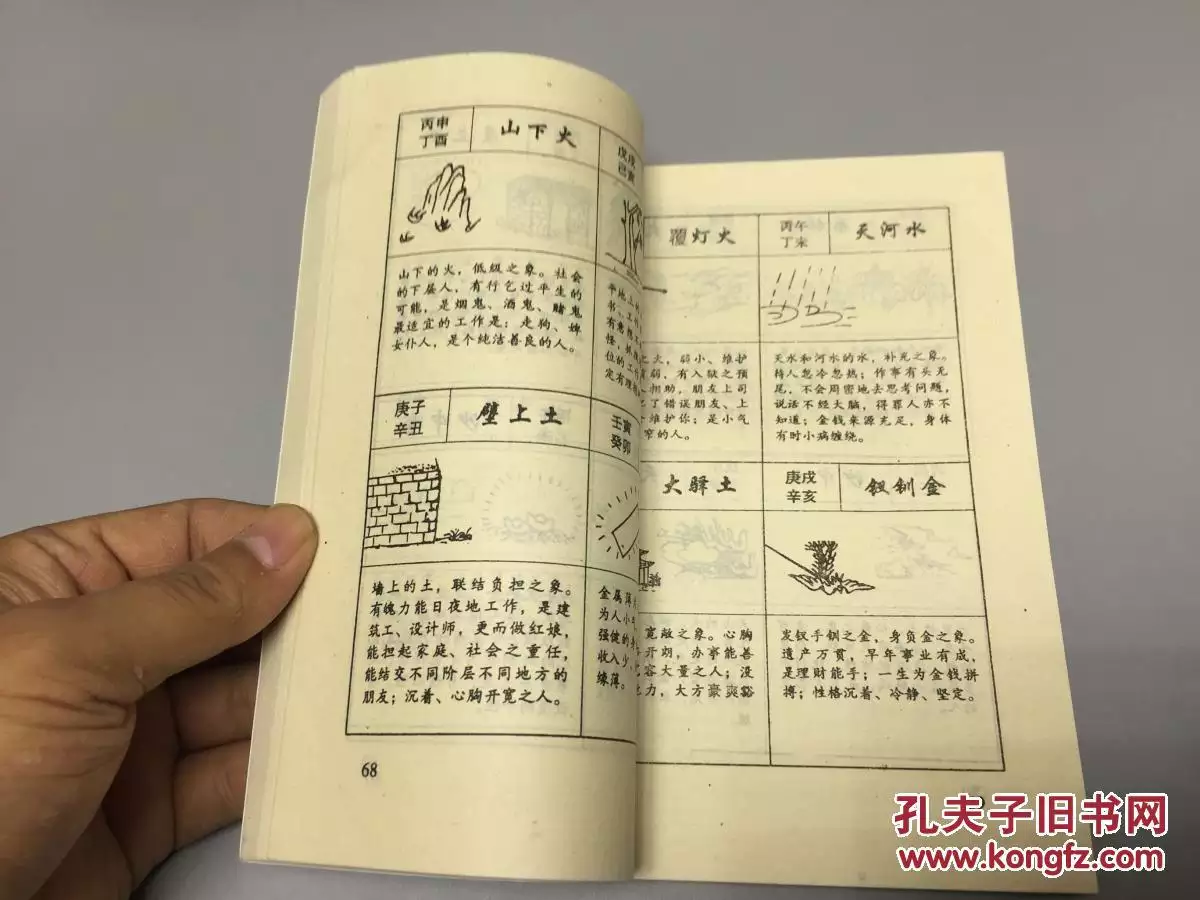 丙申
丁酉
山下火
山下的火，低级之象。社会
的下层人，有行乞过平生的
可能，是烟鬼、酒鬼、赌鬼
最适宜的工作是：走狗、婢
女仆人，是个纯洁善良的人。
庚子
辛丑
壁上土
墙上的土，联结负担之象。
有魄力能日夜地工作，是建
筑工、设计师，更而做红娘，
能担起家庭、社会之重任，
能结交不同阶层不同地方的
朋友；沉着、心胸开宽之人。
戊戌
己亥
平地上
书、工
有意想不
怪，抓
位的工作
定有理想
壬寅
癸卯
金属薄片
为人小
强健的身
收入少，
缘薄。
68
覆灯火
之火，弱小、维护
弱，有入狱之预
相助，朋友上司
了错误朋友、上
维护你；是小气
窄的人。
丙午
丁未
天河水
天水和河水的水，补充之象。
待人忽冷忽热；作事有头无
尾，不会周密地去思考问题，
说话不经大脑，得罪人亦不
知道；金钱来源充足，身体
有时小病缠绕。
大驿土
宽敞之象。心胸
开朗，办事能善
容大量之人；没
力，大方豪爽豁
庚戌
辛亥
钗钏金
发钗手钏之金，身负金之象。
遗产万贯，早年事业有成，
是理财能手；一生为金钱拼
搏；性格沉着、冷静、坚定。
孔夫子旧书网
www.kongfz.com